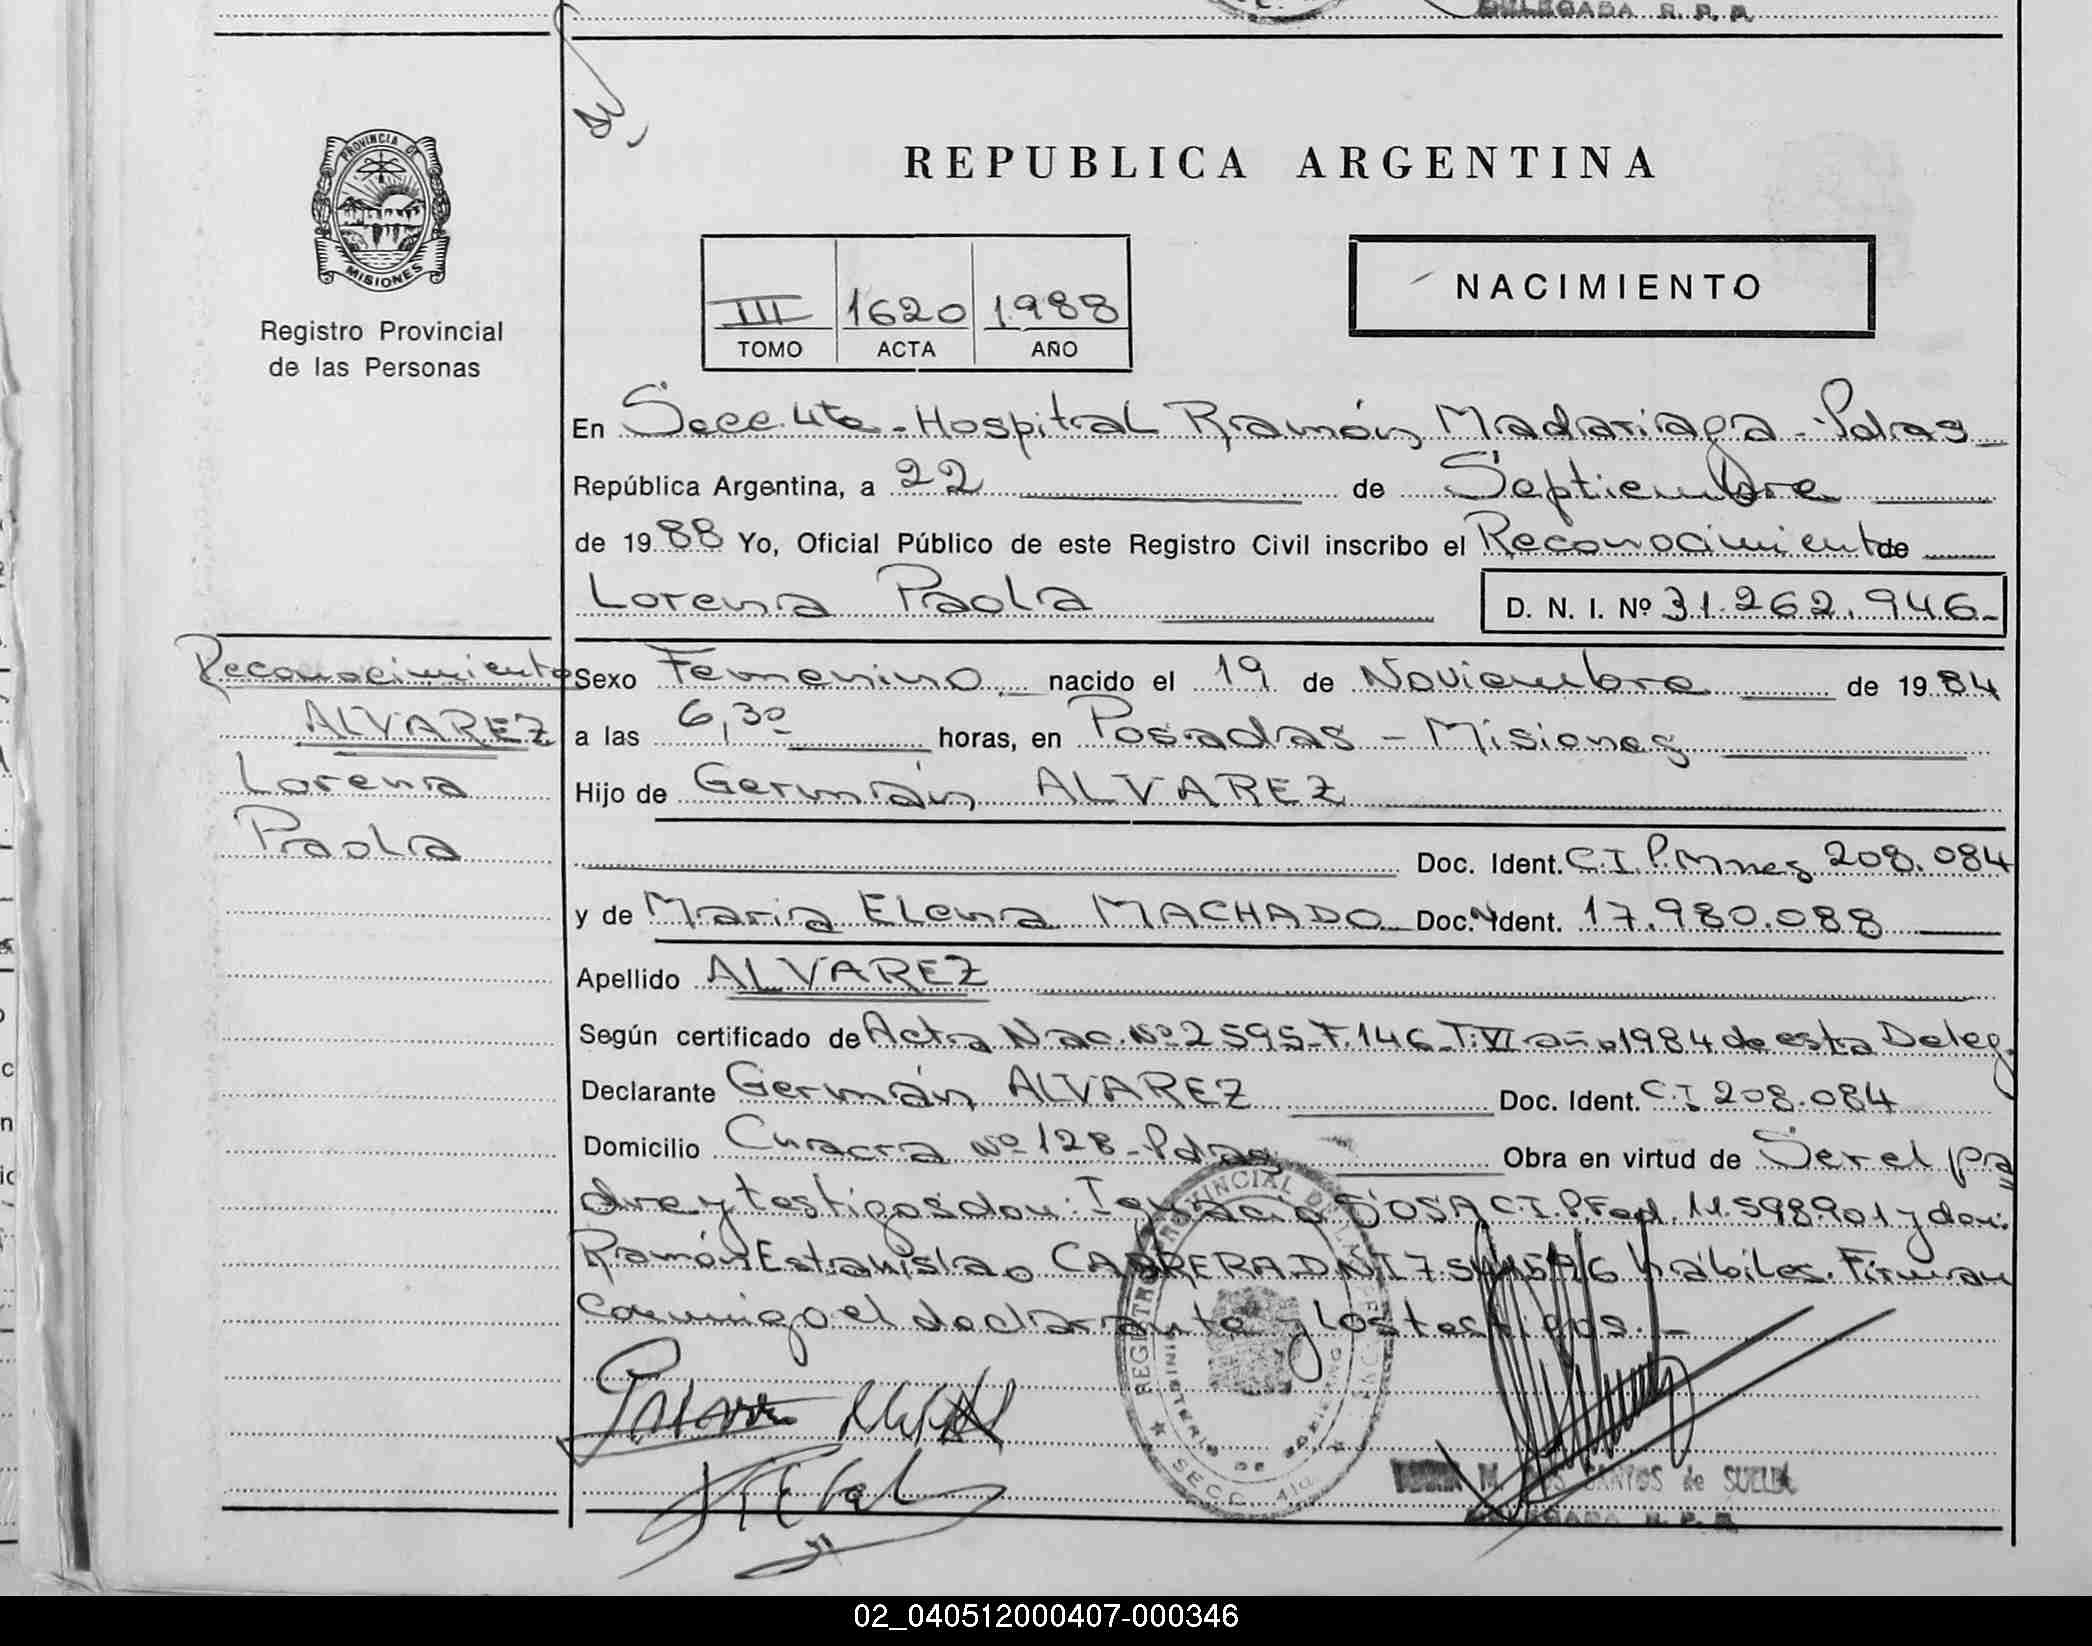 DELEGADA R. P. P.
PROVINCIA DE
MISIONES
Registro Provincial
de las Personas
REPUBLICA ARGENTINA
NACIMIENTO
III 1620 1988
TOMO ACTA AÑO
En Secc. 4ta - Hospital Ramón Madariaga - Pdas -
República Argentina, a 22 de Septiembre
de 1988 Yo, Oficial Público de este Registro Civil inscribo el Reconocimiento de
Lorena Paola D. N. I. Nº 31.262.946-
Reconocimiento
ALVAREZ
Lorena
Paola
Sexo Femenino nacido el 19 de Noviembre de 1984
a las 6,30 horas, en Posadas - Misiones
Hijo de Germán ALVAREZ
Doc. Ident. C.I.P.Mnes 208.084
y de Maria Elena MACHADO Doc. Ident. 17.980.088
Apellido ALVAREZ
Según certificado de Acta Nac. Nº 2595-F.146-T.VI año 1984 de esta Deleg.
Declarante Germán ALVAREZ Doc. Ident. C.I 208.084
Domicilio Chacra Nº 128 - Pdas Obra en virtud de Ser el pa
dre y testigos don: Ignacio SOSA C.I.P.Fed. 11.598.901 y don:
Ramón Estanislao CABRERA DNI hábiles. Firman
conmigo el declarante y los testigos. -
REGISTRO PROVINCIAL DE LAS PERSONAS
MINISTERIO DE GOBIERNO
SECC. 4ta
SANTOS de SUELDO
DELEGADA R. P. P.
02_040512000407-000346